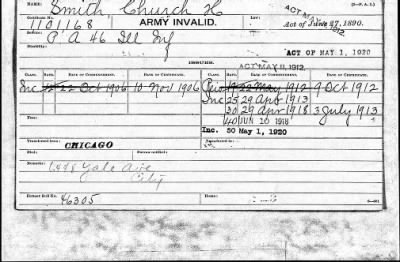 NAME: Smith, Church H. (3—P. A. I.)
1101168 ARMY INVALID. Law: ACT MAY 11, 1912. Act of June 27, 1890.
Service: P A 46 Ill Inf
Disability: ACT OF MAY 1, 1920
ISSUES: ACT MAY 11, 1912.
CLASS. RATE. DATE OF COMMENCEMENT. DATE OF CERTIFICATE. CLASS. RATE. DATE OF COMMENCEMENT. DATE OF CERTIFICATE.
Inc 22 Oct 1906 10 Nov 1906 22 May 1912 9 Oct 1912
Inc 25 29 Apr 1913
30 29 Apr 1918 3 July 1913
40 JUN 10 1918
Inc. 50 May 1, 1920
Transferred from CHICAGO Transferred to
Died:
Remarks: Yale Ave
City
Former Roll No. 46305 Home: